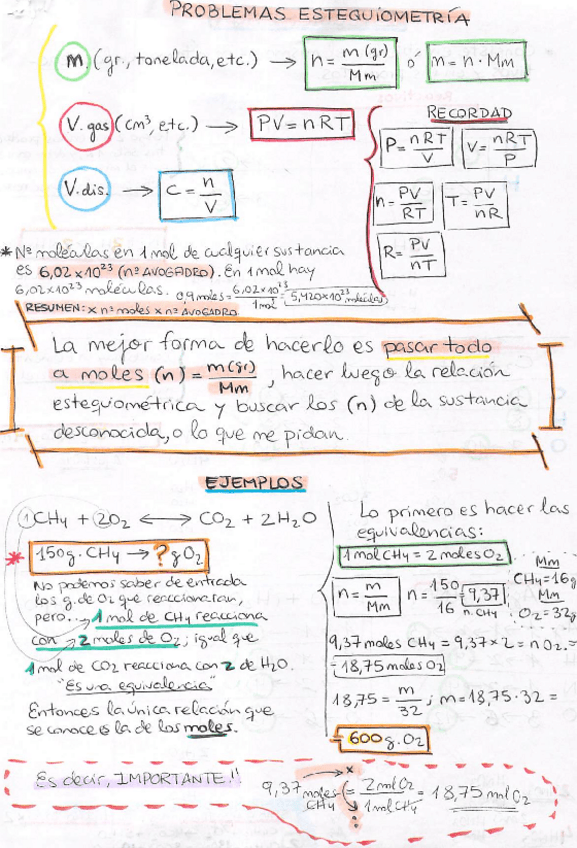 PROBLEMAS ESTEQUIOMETRÍA
m. (gr., tonelada, etc.) → n = m (gr) / Mm ó m = n · Mm
V. gas (cm³, etc.) → PV = nRT
V. dis. → C = n / V
RECORDAD
P = nRT / V V = nRT / P
n = PV / RT T = PV / nR
R = PV / nT
* Nº moléculas en 1 mol de cualquier sustancia
es 6,02 x 10²³ (nº AVOGADRO). En 1 mol hay
6,02x10²³ moléculas. 0,9 moles = 6,02x10²³ / 1 mol = 5,420x10²³ moléculas
RESUMEN: x nº moles x nº AVOGADRO
La mejor forma de hacerlo es pasar todo
a moles (n) = m(gr) / Mm, hacer luego la relación
estequiométrica y buscar los (n) de la sustancia
desconocida, o lo que me pidan.
EJEMPLOS
1CH4 + 2O2 ⟷ CO2 + 2H2O
* 150g. CH4 → ? g O2
No podemos saber de entrada
los g. de O2 que reaccionaran,
pero... → 1 mol de CH4 reacciona
con → 2 moles de O2; igual que
1 mol de CO2 reacciona con 2 de H2O.
"Es una equivalencia"
Entonces la única relación que
se conoce es la de los moles.
Lo primero es hacer las
equivalencias:
1 mol CH4 = 2 moles O2
n = m / Mm n = 150 / 16 = 9,37 n. CH4
Mm
CH4 = 16g
Mm
O2 = 32g
9,37 moles CH4 = 9,37 x 2 = n O2 =
= 18,75 moles O2
18,75 = m / 32 ; m = 18,75 · 32 =
= 600 g. O2
Es decir, IMPORTANTE!!
9,37 moles CH4 (= 2 mol O2 / 1 mol CH4 = 18,75 mol O2
x
: